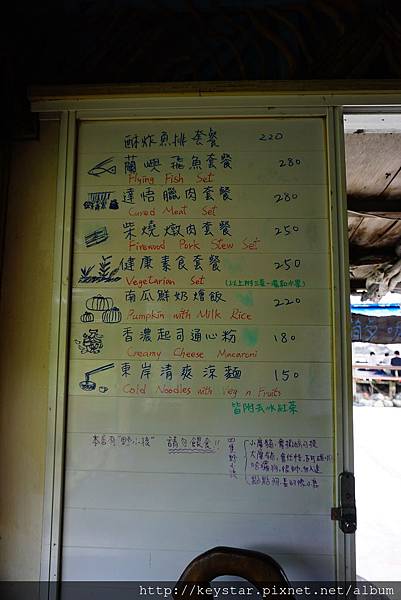 酥炸魚排套餐 220
蘭嶼飛魚套餐 280
Flying Fish Set
達悟臘肉套餐 280
Cured Meat Set
柴燒燉肉套餐 250
Firewood Pork Stew Set
健康素食套餐 250
Vegetarian Set
南瓜鮮奶燴飯 220
Pumpkin with Milk Rice
香濃起司通心粉 180
Creamy Cheese Macaroni
東岸清爽涼麵 150
Cold Noodles with Veg n Fruits
皆附去冰紅茶
本店有"野小孩" 請勿餵食!!
http://keystar.pixnet.net/album